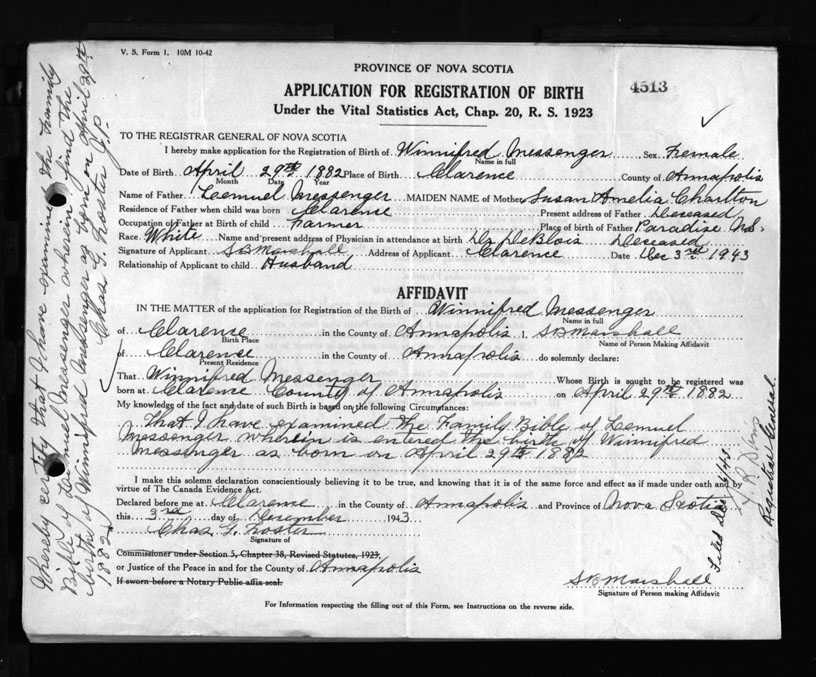 V. S. Form 1. 10M 10-42
PROVINCE OF NOVA SCOTIA
4513
APPLICATION FOR REGISTRATION OF BIRTH
Under the Vital Statistics Act, Chap. 20, R. S. 1923
TO THE REGISTRAR GENERAL OF NOVA SCOTIA
I hereby make application for the Registration of Birth of Winnifred Messenger Sex Female
Name in full
Date of Birth April 29th 1882 Place of Birth Clarence County of Annapolis
Month Date Year
Name of Father Lemuel Messenger MAIDEN NAME of Mother Susan Amelia Charlton
Residence of Father when child was born Clarence Present address of Father Deceased
Occupation of Father at Birth of child Farmer Place of birth of Father Paradise N.S.
Race White Name and present address of Physician in attendance at birth Dr DeBlois Deceased
Signature of Applicant S B Marshall Address of Applicant Clarence Date Dec 3rd 1943
Relationship of Applicant to child Husband
AFFIDAVIT
IN THE MATTER of the application for Registration of the Birth of Winnifred Messenger
Name in full
of Clarence in the County of Annapolis I, S B Marshall
Birth Place Name of Person Making Affidavit
of Clarence in the County of Annapolis do solemnly declare:
Present Residence
That Winnifred Messenger Whose Birth is sought to be registered was
born at Clarence County of Annapolis on April 29th 1882
My knowledge of the fact and date of such Birth is based on the following Circumstances:
That I have examined the Family Bible of Lemuel
Messenger wherein is entered the birth of Winnifred
Messenger as born on April 29th 1882
I make this solemn declaration conscientiously believing it to be true, and knowing that it is of the same force and effect as if made under oath and by
virtue of The Canada Evidence Act.
Declared before me at Clarence in the County of Annapolis and Province of Nova Scotia
this 3rd day of December 1943
Chas G. Foster
Signature of
Commissioner under Section 5, Chapter 38, Revised Statutes, 1923,
or Justice of the Peace in and for the County of Annapolis
If sworn before a Notary Public affix seal.
S B Marshall
Signature of Person making Affidavit
For Information respecting the filling out of this Form, see Instructions on the reverse side.
I hereby certify that I have examined the Family
Bible of Lemuel Messenger wherein I find the
birth of Winnifred Messenger born on April 29th
1882 Chas G. Foster J.P.
Filed Dec 6/43
Registrar General.